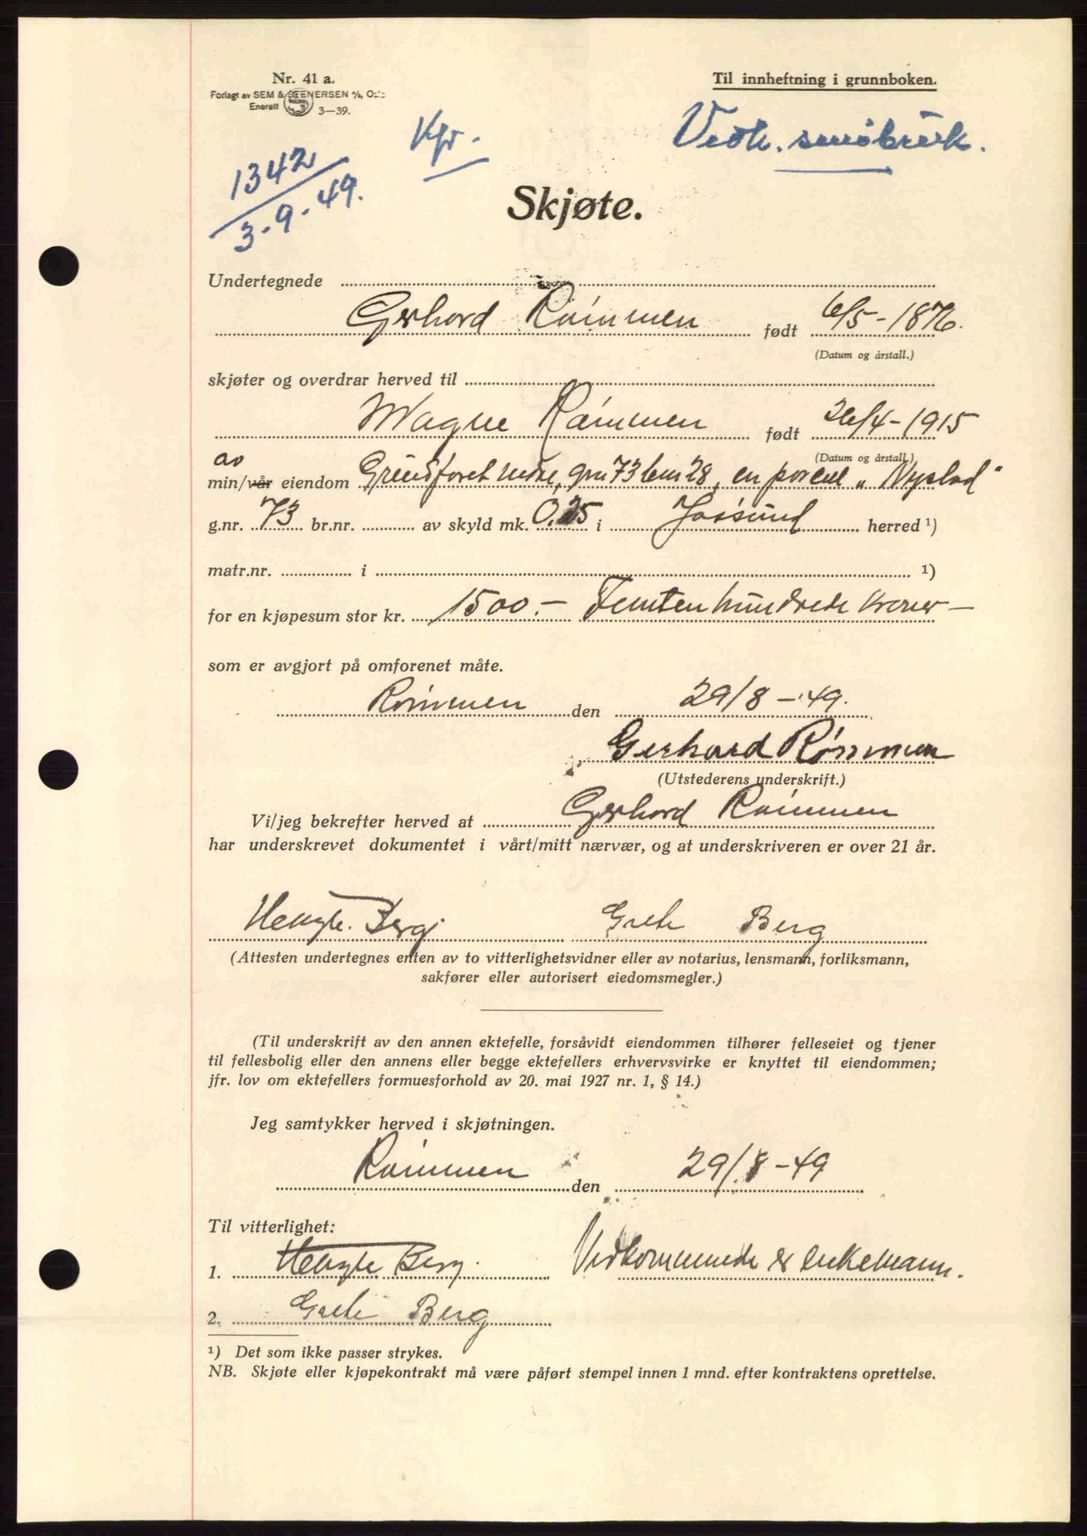 Nr. 41 a.
Til innheftning i grunnboken.
Forlagt av SEM & STENERSEN A/S, Oslo
Enerett 3—39.
Kfr.
Vedk. småbruk.
1342
3-9-49.
Skjøte.
Undertegnede
Gerhard Rømmen født 6/5-1876.
(Datum og årstall.)
skjøter og overdrar herved til
Magne Rømmen født 26/4-1915
(Datum og årstall.)
av
min/vår eiendom nedre, gnr 73 bnr 28, en parsell „Nystad"
g.nr. 73 br.nr. av skyld mk. 0.25 i Jøssund herred ¹)
matr.nr. i ¹)
for en kjøpesum stor kr. 1500.- Femtenhundrede kroner—
som er avgjort på omforenet måte.
Rømmen den 29/8-49.
Gerhard Rømmen
(Utstederens underskrift.)
Vi/jeg bekrefter herved at Gerhard Rømmen
har underskrevet dokumentet i vårt/mitt nærvær, og at underskriveren er over 21 år.
Berg Grete Berg
(Attesten undertegnes enten av to vitterlighetsvidner eller av notarius, lensmann, forliksmann,
sakfører eller autorisert eiedomsmegler.)
(Til underskrift av den annen ektefelle, forsåvidt eiendommen tilhører felleseiet og tjener
til fellesbolig eller den annens eller begge ektefellers erhvervsvirke er knyttet til eiendommen;
jfr. lov om ektefellers formuesforhold av 20. mai 1927 nr. 1, § 14.)
Jeg samtykker herved i skjøtningen.
Rømmen den 29/8-49
Til vitterlighet:
1. Berg. Vedkommende er enkemann.
2. Grete Berg
¹) Det som ikke passer strykes.
NB. Skjøte eller kjøpekontrakt må være påført stempel innen 1 mnd. efter kontraktens oprettelse.